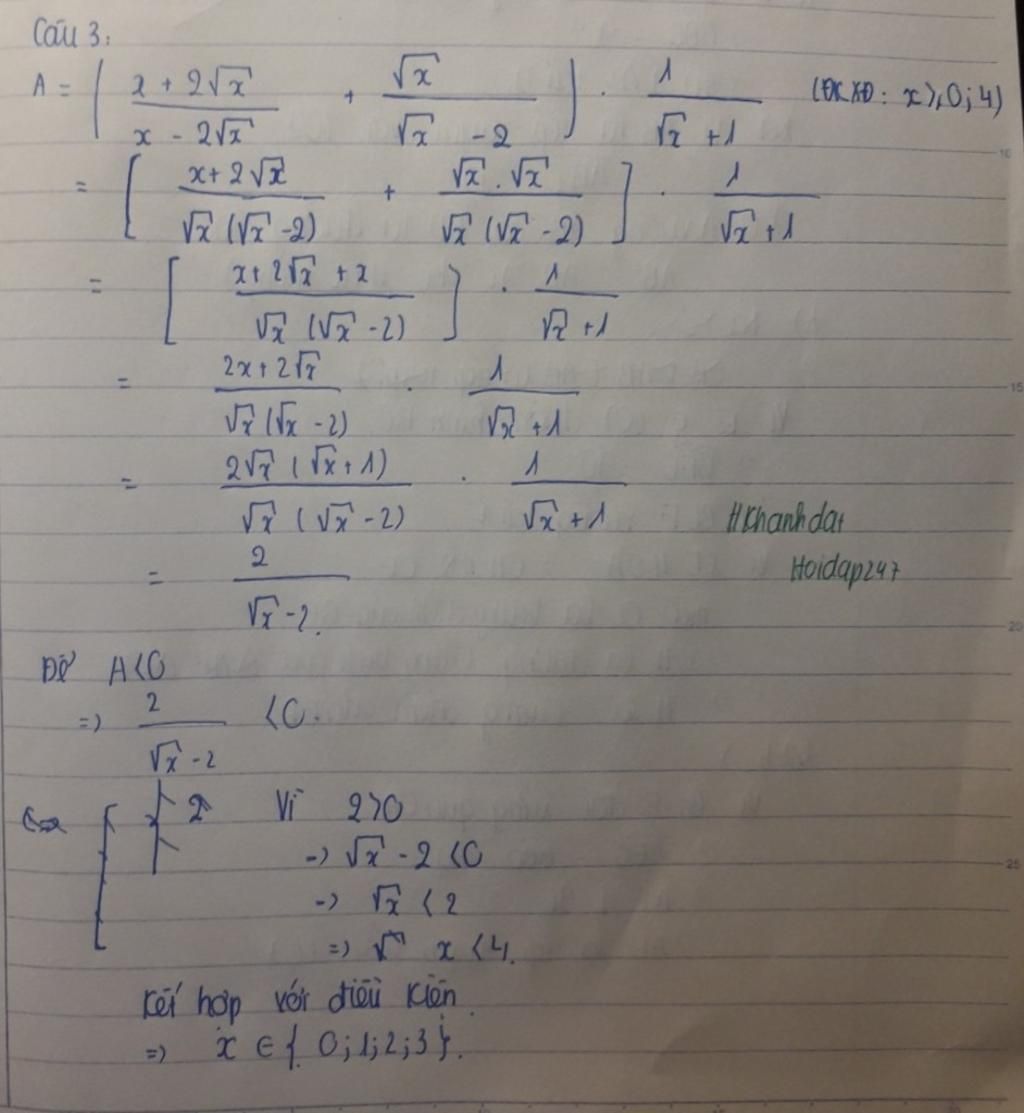 Câu 3:
A = ( (x + 2√x)/(x - 2√x) + √x/(√x - 2) ) . 1/(√x + 1) (ĐKXĐ: x >, 0; 4)
= [ (x + 2√x)/(√x (√x - 2)) + (√x . √x)/(√x (√x - 2)) ] . 1/(√x + 1)
= [ (x + 2√x + x)/(√x (√x - 2)) ] . 1/(√x + 1)
= (2x + 2√x)/(√x (√x - 2)) . 1/(√x + 1)
= (2√x (√x + 1))/(√x (√x - 2)) . 1/(√x + 1)
#Khanhdat
= 2/(√x - 2).
Hoidap247
Để A < 0
=> 2/(√x - 2) < 0.
Vì 2 > 0
-> √x - 2 < 0
-> √x < 2
=> x < 4.
Kết hợp với điều kiện.
=> x ∈ { 0; 1; 2; 3 }.